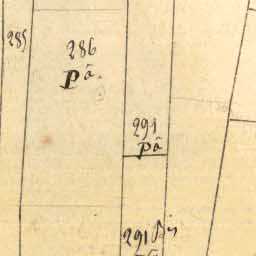 285
286
Pâ.
291
Pâ
291 Bis